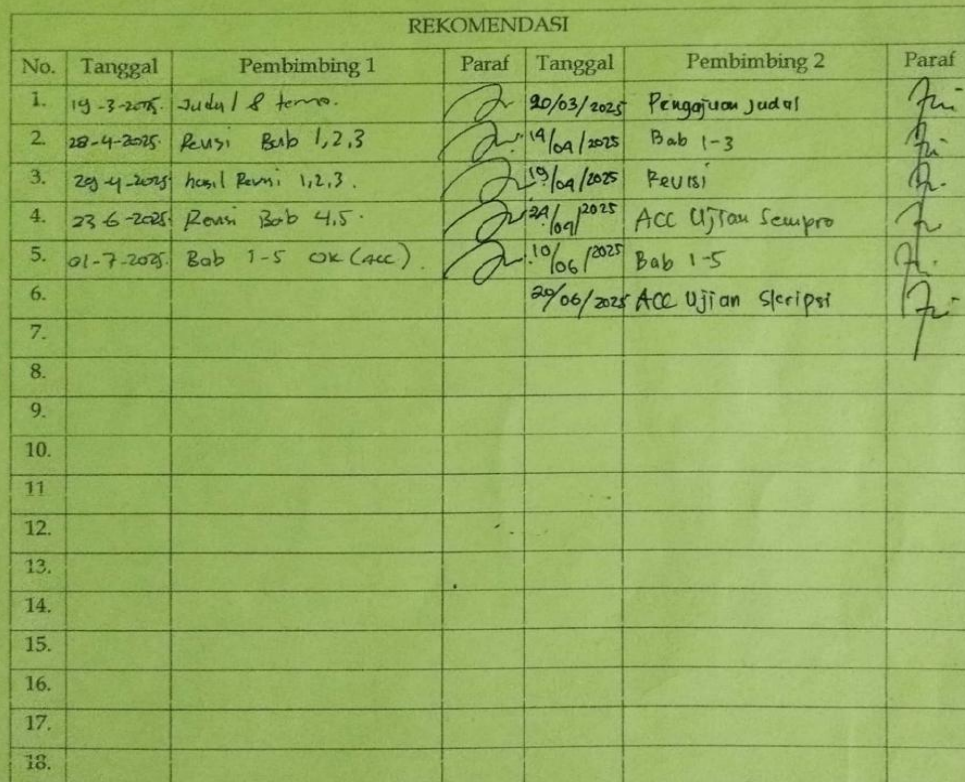 REKOMENDASI
No. Tanggal Pembimbing 1 Paraf Tanggal Pembimbing 2 Paraf
1. 19-3-2025. Judul & tema. 20/03/2025 Pengajuan Judul
2. 28-4-2025. Revisi Bab 1,2,3 14/04/2025 Bab 1-3
3. 29-4-2025 hasil Revisi 1,2,3. 19/04/2025 Revisi
4. 23-6-2025. Revisi Bab 4,5. 24/04/2025 ACC Ujian Sempro
5. 01-7-2025. Bab 1-5 OK (Acc). 10/06/2025 Bab 1-5
6. 20/06/2025 ACC Ujian Skripsi
7.
8.
9.
10.
11
12.
13.
14.
15.
16.
17.
18.